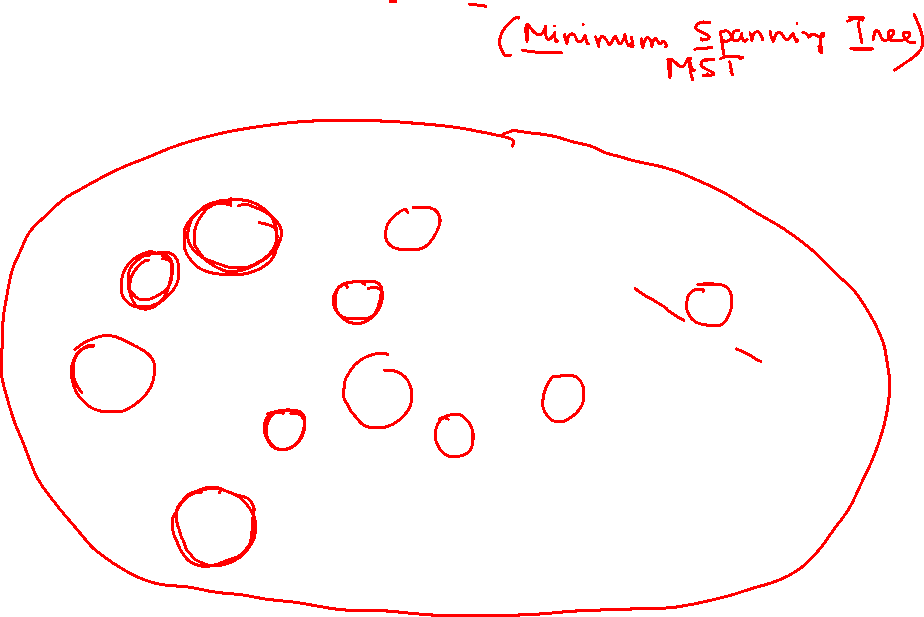 (Minimum Spanning Tree)
MST